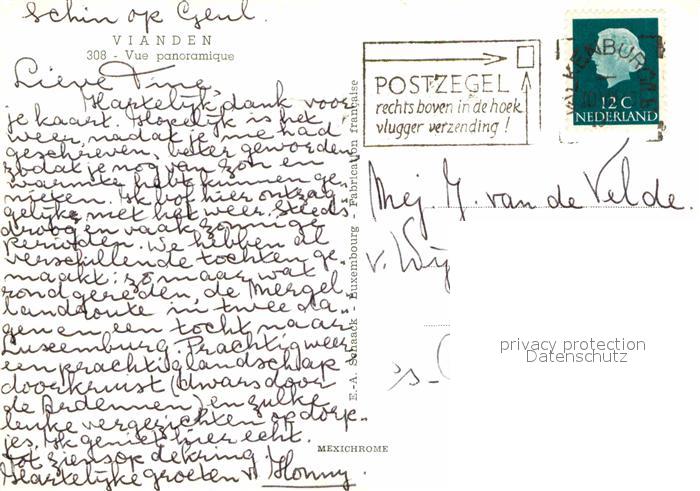 Schin op Geul.
VIANDEN
308 - Vue panoramique
Lieve Tine,
Hartelijk dank voor
je kaart. Hopelijk is het
weer, nadat je me had
geschreven, beter geworden
zodat je nog van zon en
warmte hebt kunnen ge-
nieten. Ik bof hier ontzag-
gelijk met het weer. Steeds
droog en vaak zonnige
perioden. We hebben al
verschillende tochten ge-
maakt: zomaar wat
rondgereden, de Mergel-
landroute in twee da-
gen en een tocht naar
Luxemburg. Prachtig weer
en prachtig landschap
doorkruist (dwars door
de Ardennen) en zulke
leuke vergezichten op dorp-
jes. Ik geniet hier echt.
Tot ziens op de kring!
Hartelijke groeten v. Honny.
E.-A. Schaack - Luxembourg - Fabrication française
MEXICHROME
POSTZEGEL
rechts boven in de hoek
vlugger verzending!
VALKENBURG
12 C
NEDERLAND
Mej. J. van de Velde.
v.
's-
privacy protection
Datenschutz